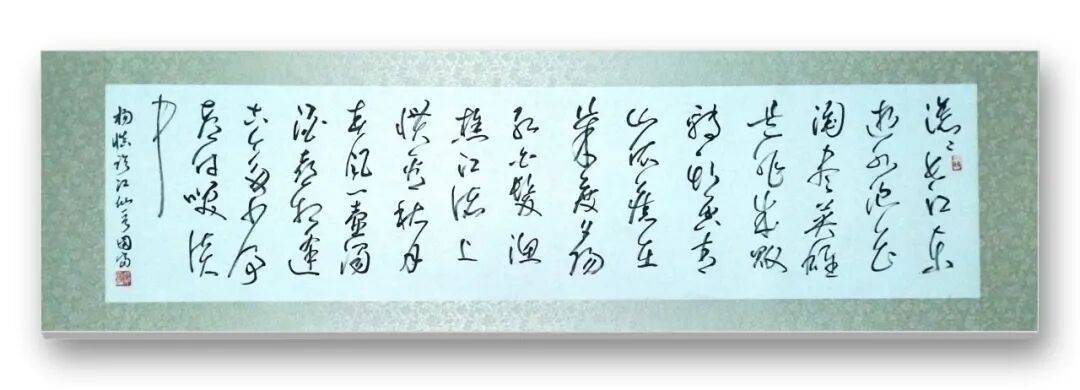 滚滚长江东
逝水浪花
淘尽英雄
是非成败
转头空青
山依旧在
几度夕阳
红白发渔
樵江渚上
惯看秋月
春风一壶浊
酒喜相逢
古今多少事
都付笑谈
中
杨慎临江仙